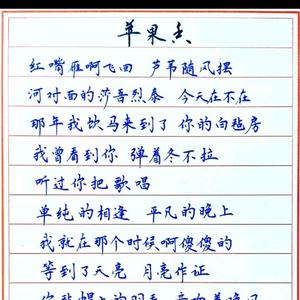 苹果香
红嘴雁啊飞回 芦苇随风摆
河对面的莎吾烈泰 今天在不在
那年我饮马来到了 你的白毡房
我曾看到你 弹着冬不拉
听过你把歌唱
单纯的相逢 平凡的晚上
我就在那个时候啊傻傻的
等到了天亮 月亮作证